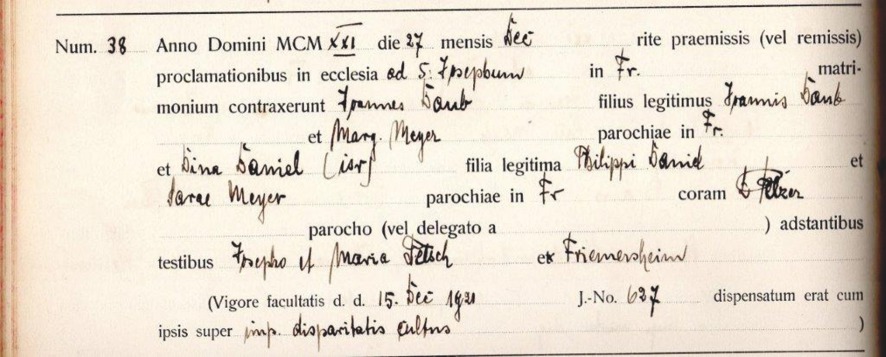 Num. 38 Anno Domini MCM XXI die 27 mensis Dec rite praemissis (vel remissis)
proclamationibus in ecclesia ad S. Josephum in Fr. matri-
monium contraxerunt Joannes Daub filius legitimus Joannis Daub
et Marg. Meyer parochiae in Fr.
et Dina Daniel (isr) filia legitima Philippi Daniel et
Sarae Meyer parochiae in Fr coram Pelzer
parocho (vel delegato a ) adstantibus
testibus Josepho et Maria Fetsch ex Friemersheim
(Vigore facultatis d. d. 15. Dec 1921 J.-No. 637 dispensatum erat cum
ipsis super imp. disparitatis cultus )